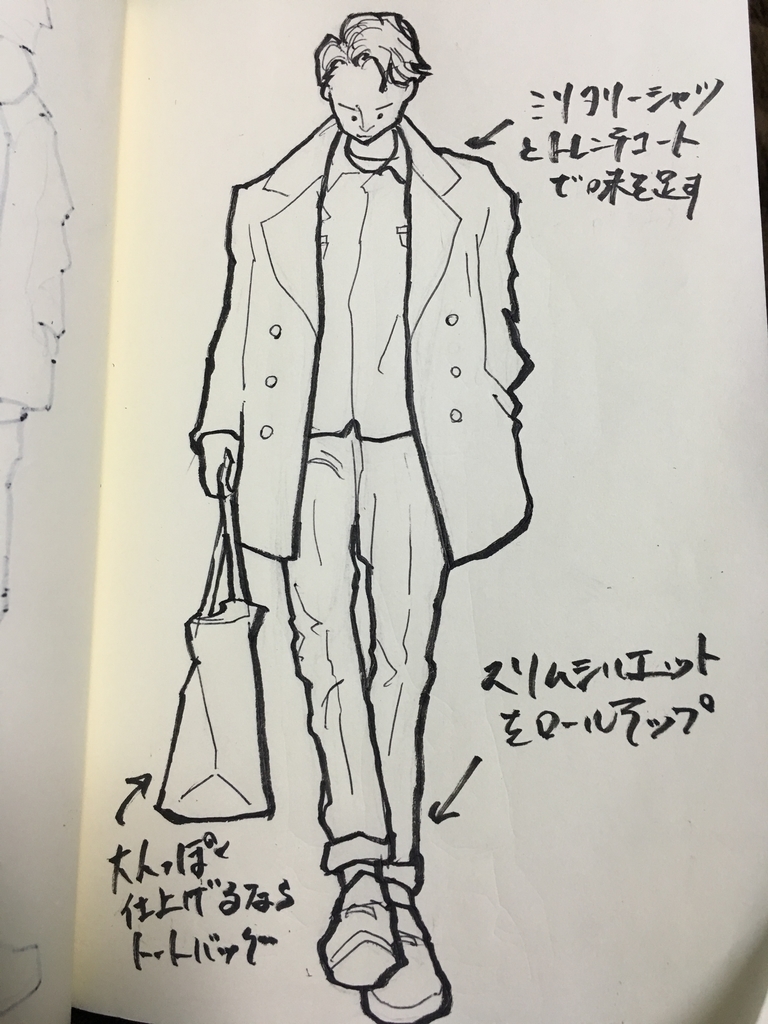 ミリタリーシャツ
とトレンチコート
で味を足す
スリムシルエット
をロールアップ
大人っぽく
仕上げるなら
トートバッグ